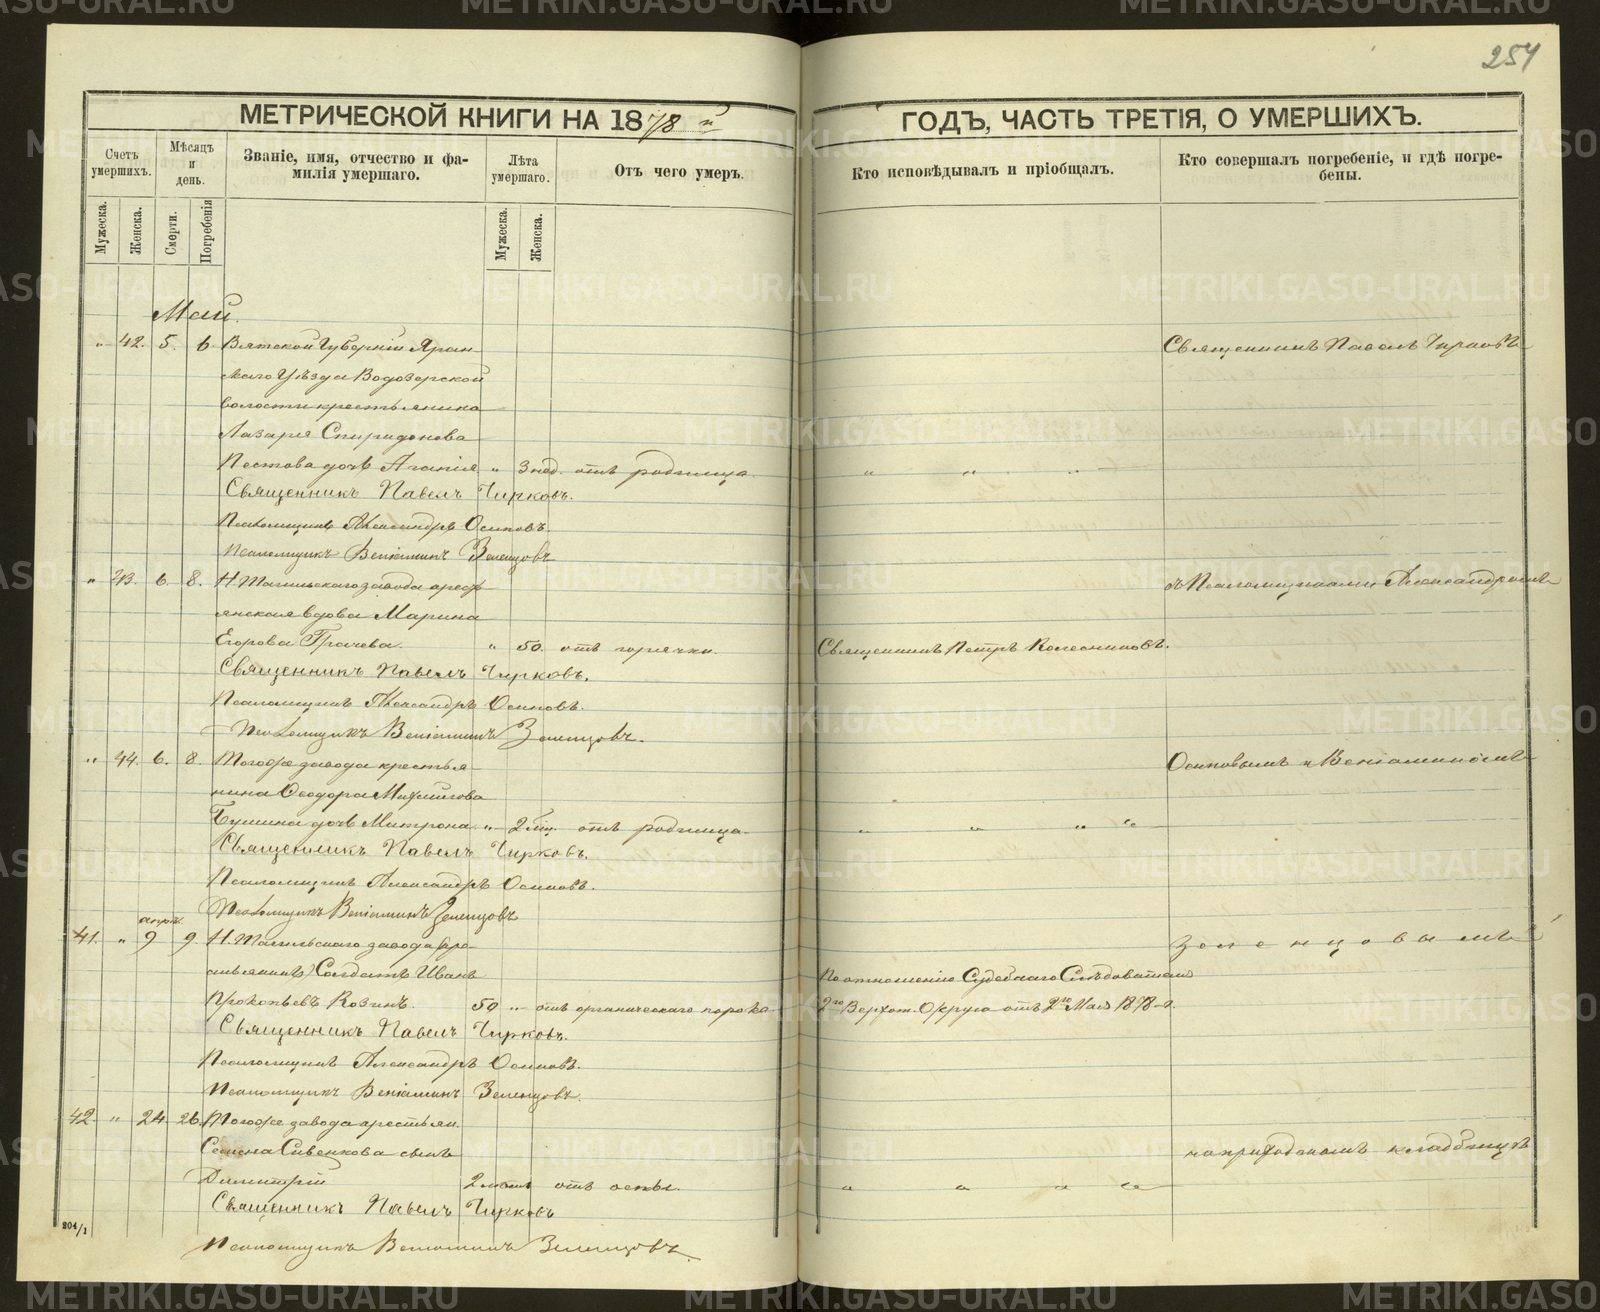 254
МЕТРИЧЕСКОЙ КНИГИ НА 1878 й
ГОДЪ, ЧАСТЬ ТРЕТІЯ, О УМЕРШИХЪ.
Счетъ умершихъ.
Мѣсяцъ и день.
Званіе, имя, отчество и фамилія умершаго.
Лѣта умершаго.
Отъ чего умеръ.
Кто исповѣдывалъ и пріобщалъ.
Кто совершалъ погребеніе, и гдѣ погребены.
Мужеска.
Женска.
Смерти.
Погребенія
Мужеска.
Женска.
Май.
" 42. 5. 6. Вятской Губерніи Яран-
Священникъ Павелъ Чирковъ
скаго Уѣзда Водозерской
волости крестьянина
Лазаря Спиридонова
Пестова дочь Агапія " 3 нед. отъ родимца. " " "
Священникъ Павелъ Чирковъ.
Псаломщикъ Александръ Осиповъ.
Псаломщикъ Веніаминъ Зеленцовъ
" 43. 6. 8. Н. Тагильскаго завода крест-
съ Псаломщиками Александромъ
янская вдова Марина
Егорова Грачева. " 50. отъ горячки. Священникъ Петръ Колесниковъ.
Священникъ Павелъ Чирковъ.
Псаломщикъ Александръ Осиповъ.
Псаломщикъ Веніаминъ Зеленцовъ.
" 44. 6. 8. Тогоже завода крестья-
Осиповымъ и Веніаминомъ
нина Ѳеодора
дочь Матрона " 2 отъ родимца " " " "
Священникъ Павелъ Чирковъ.
Псаломщикъ Александръ Осиповъ.
Псаломщикъ Веніаминъ Зеленцовъ
апрѣ.
41. " 9 9. Н. Тагильскаго завода кре-
Зеленцовымъ
стьянинъ) Солдатъ Иванъ
По отношенію Судебнаго Слѣдователя
Прокопьевъ Козинъ. 50 " отъ органическаго порока
2го Верхот. Округа отъ 2го Мая 1878 г.
Священникъ Павелъ Чирковъ.
Псаломщикъ Александръ Осиповъ.
Псаломщикъ Веніаминъ Зеленцовъ.
42. " 24 26. Тогоже завода крестьян.
на приходскомъ кладбищѣ
Семена Сивенкова сынъ
Димитрій 2 отъ оспы. " " " "
Священникъ Павелъ Чирковъ
204/1
Псаломщикъ Веніаминъ Зеленцовъ.
METRIKI.GASO-URAL.RU